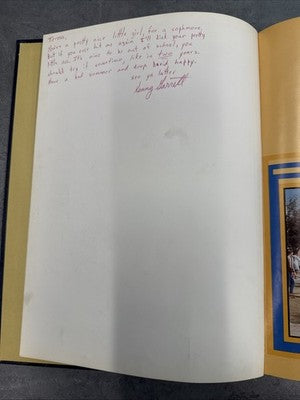 You're a pretty nice little girl, for a sophmore,
but if you ever hit me again I'll kick your pretty
little ass. It's nice to be out of school, you
should try it sometime, like in two years.
Have a bad summer and keep being happy.
see ya later
Garrett